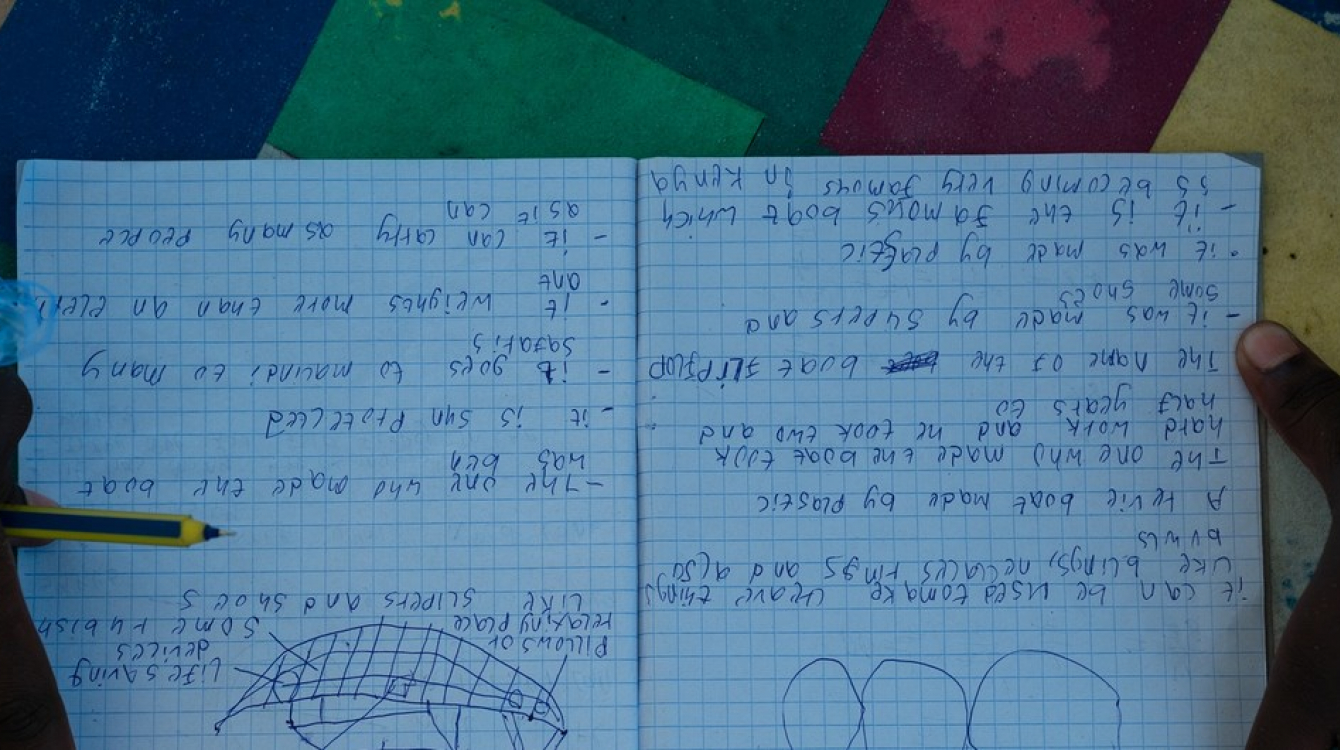 it can be used tomake things
Like blings, neclaces rings and also
A boat made by plastic
The one who made the boat took
hard work and he took two and
half years to
The name of the boat FLIPFLOP
- it was made by slipers and
some shoes
• it was made by plastic
- it is the famous boat which
is becoming very famous in kenya
Pillows or
relaxing place
Life saving
devices
some rubish
Like slipers and shoes
- The one who made the boat
was ben
- it is sun Protected
- it goes to to many
safaris
- it weighes more than an eleph
ant
- it can carry as many people
as it can